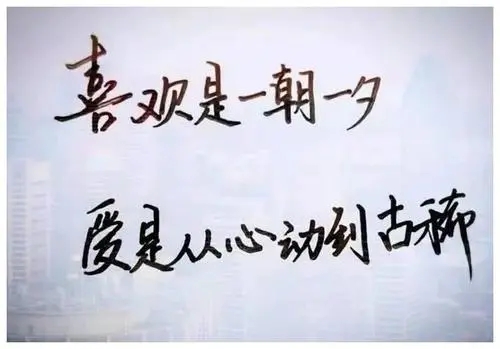 喜欢是一朝一夕
爱是从心动到古稀